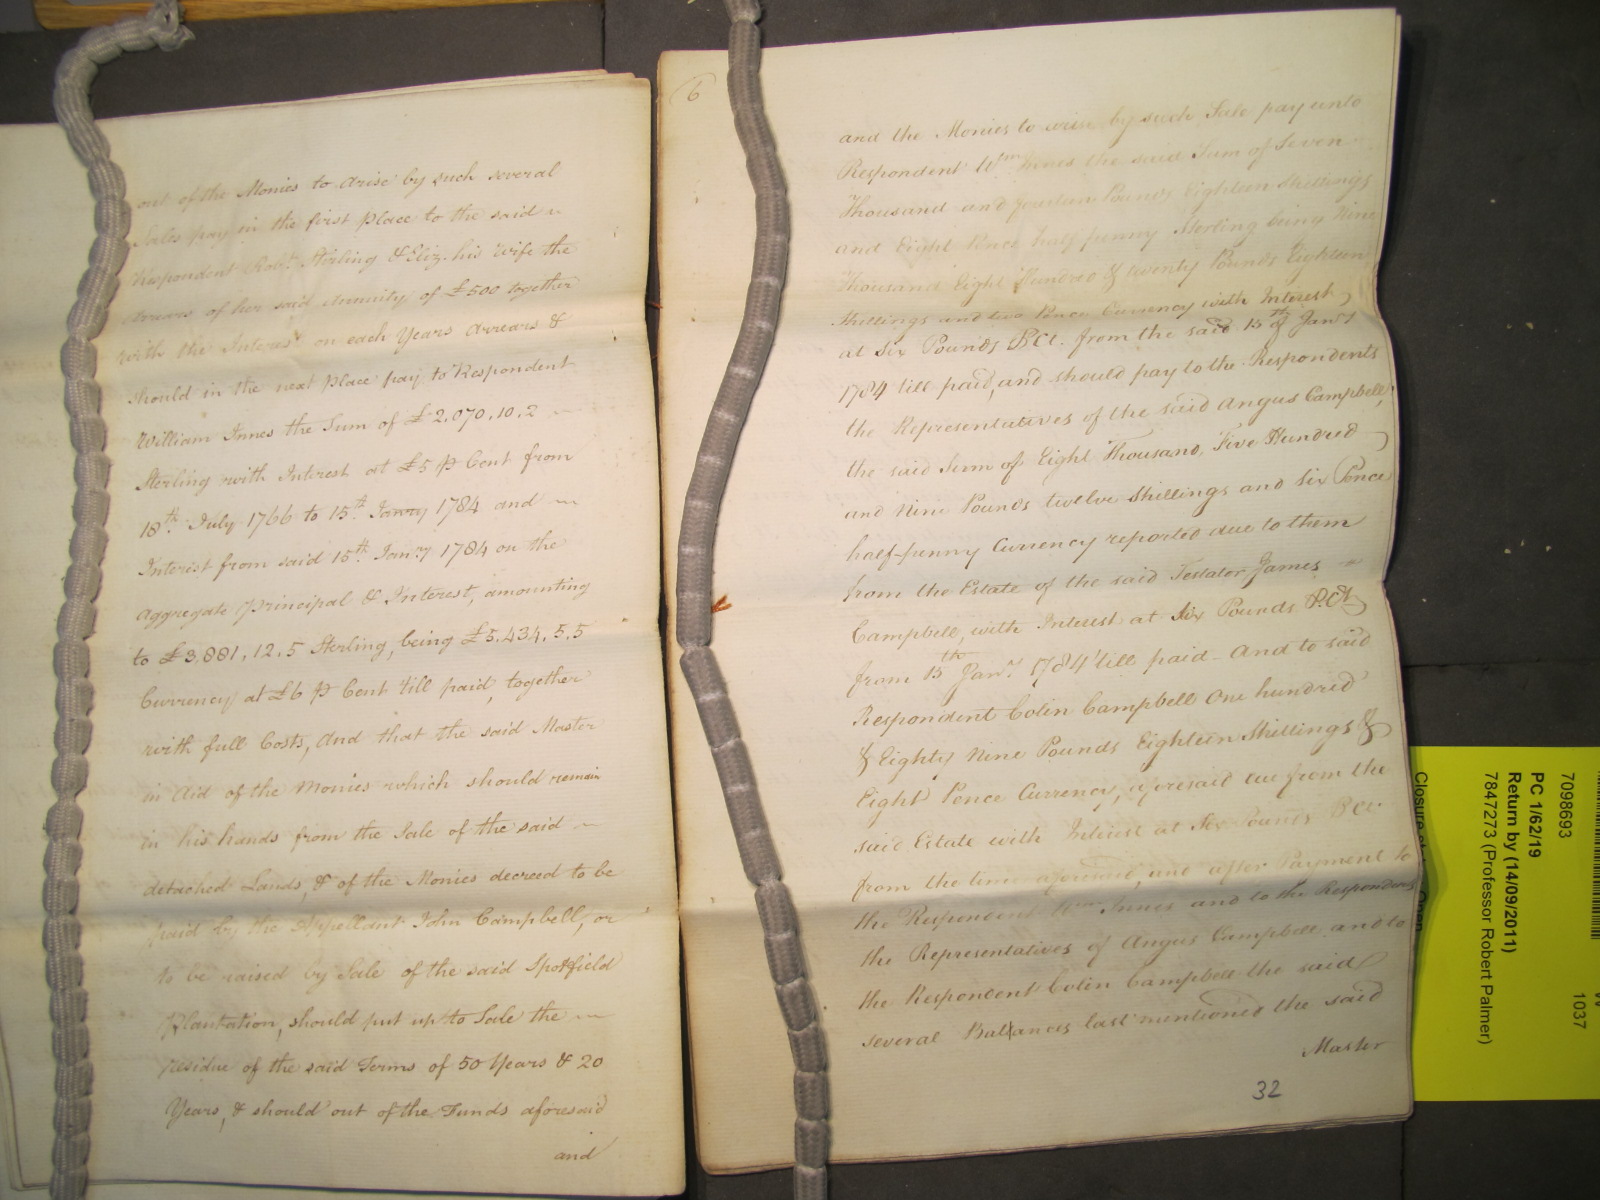 out of the Monies to arise by such several
Sales pay in the first place to the said
Respondent Robt. Stirling & Eliz. his Wife the
Arrears of her said Annuity of £500 together
with the Interest on each Years Arrears &
should in the next place pay to Respondent
William Innes the Sum of £2,070,,10,,2
Sterling with Interest at £5 ⅌ Cent from
18th. July 1766 to 15th. Janry 1784 and
Interest from said 15th. Janry 1784 on the
aggregate Principal & Interest, amounting
to £3,881,,12,,5 Sterling, being £5,434,,5,,5
Currency at £6 ⅌ Cent till paid, together
with full Costs, And that the said Master
in Aid of the Monies which should remain
in his hands from the Sale of the said
detached Lands, & of the Monies decreed to be
paid by the Appellant John Campbell, or
to be raised by Sale of the said Spotfield
Plantation, should put up to Sale the
residue of the said Terms of 50 Years & 20
Years, & should out of the Funds aforesaid
and
6
and the Monies to arise by such Sale pay unto
Respondent Wm Innes the said Sum of Seven
Thousand and fourteen Pounds Eighteen Shillings
and Eight Pence half penny Sterling being Nine
Thousand Eight Hundred & twenty Pounds Eighteen
Shillings and two Pence Currency with Interest
at Six Pounds ⅌ Ct. from the said 15th of Jany
1784 till paid, and should pay to the Respondents
the Representatives of the said Angus Campbell,
the said Sum of Eight Thousand, Five Hundred
and Nine Pounds twelve Shillings and Six Pence
half-penny Currency reported due to them
from the Estate of the said Testator James
Campbell, with Interest at Six Pounds ⅌ Ct
from 15th Jany 1784 till paid - And to said
Respondent Colin Campbell One hundred
& Eighty Nine Pounds Eighteen Shillings &
Eight Pence Currency, aforesaid due from the
said Estate with Interest at Six Pounds ⅌ Ct
from the time aforesaid, and after Payment to
the Respondent Wm Innes and to the Respondents
the Representatives of Angus Campbell and to
the Respondent Colin Campbell the said
several Ballances last mentioned the said
Master
32
7098693
PC 1/62/19
Return by (14/09/2011)
7847273 (Professor Robert Palmer)
1037